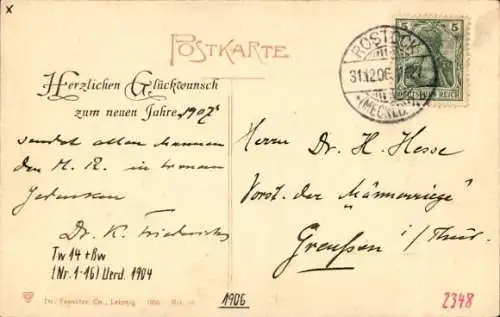 x
POSTKARTE
Herzlichen Glückwunsch
zum neuen Jahre 1907
sendet allen Mannen
der M. R. in treuem
Gedenken
Dr. K. Friederichs
Tw 14 + Bw
(Nr. 1-16) Verd. 1904
Dr. Trenkler Co., Leipzig. 1906.
1906
5 5
DEUTSCHES REICH
ROSTOCK
31.12.06
* (MECKLB.)
Herrn Dr. H. Hesse
Vorst. der "Männerriege"
Greußen i/Thür.
2348